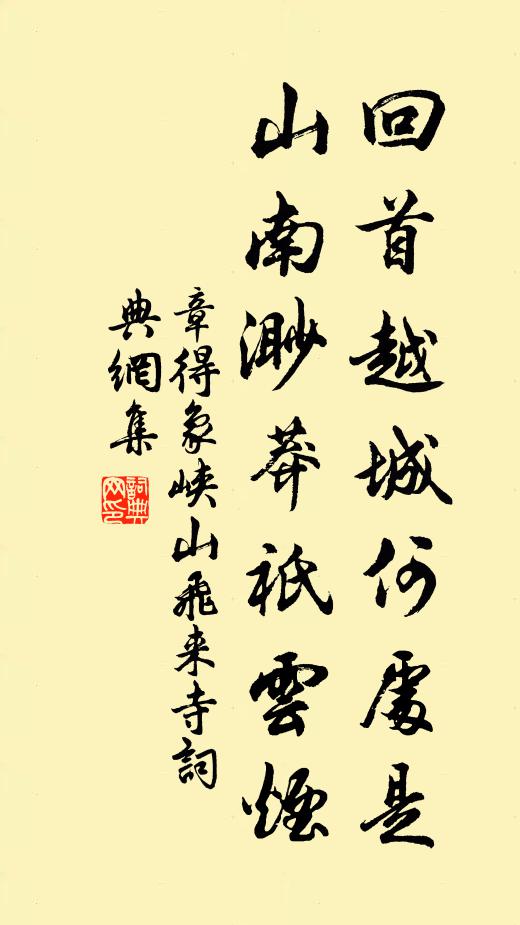 回首越城何處是
山南渺莽祇雲煙
章得象峡山飛来寺詞
典網集
詞典
网印